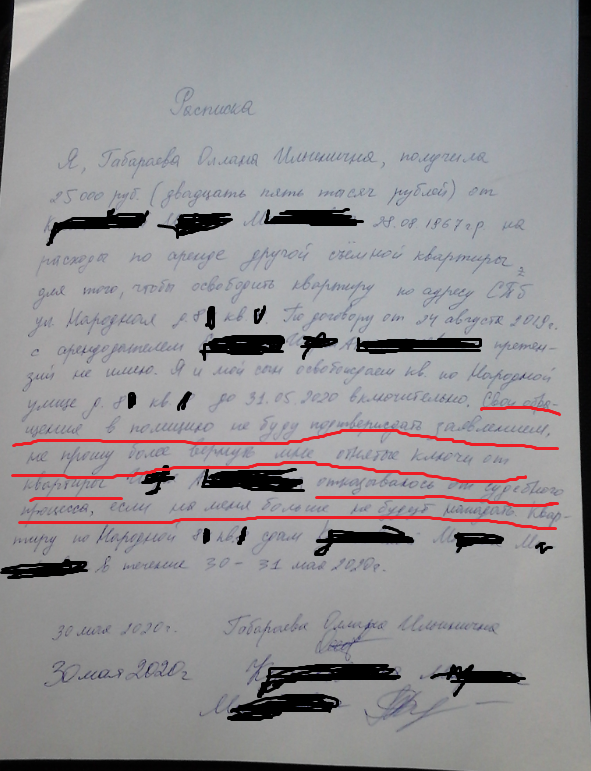 Расписка
Я, Габараева Оллана Ильинична, получила
25000 руб. (двадцать пять тысяч рублей) от
К М М 28.08.1967 г.р. на
расходы по аренде другой съёмной квартиры,
для того, чтобы освободить квартиру по адресу СПб
ул. Народная д. 8 кв По договору от 24 августа 2019г.
с арендодателем А претен-
зий не имею. Я и мой сын освобождаем кв. по Народной
улице д. 8 кв до 31.05.2020 включительно. Свои обра-
щения в полицию не буду подтверждать заявлением,
не прошу более вернуть мне отнятые ключи от
квартиры отказываюсь от судебного
процесса, если на меня больше не будут нападать. Квар-
тиру по Народной 8 кв. сдам М
в течение 30-31 мая 2020г.
30 мая 2020г. Габараева Оллана Ильинична
30 мая 2020г К
М